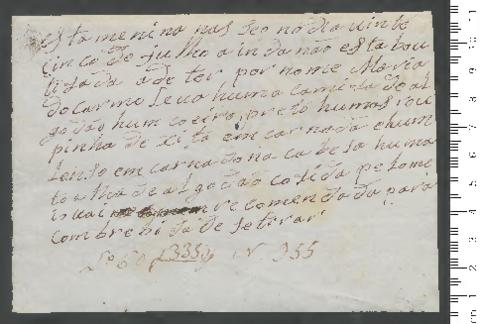 esta menina nas seo no dia vinte
sinco de julho a inda nao esta bau
tisada a de ter por nome Maria
do carmo Leva huma camiza de al
godão hum coeiro, preto humas rou
pinha de xita em carnada e hum
lenso em carnado na cabesa huma
toalha de algodão cosida pelo me
io vai recomendada para
com brevidade se tirar
Nº 60 N 355